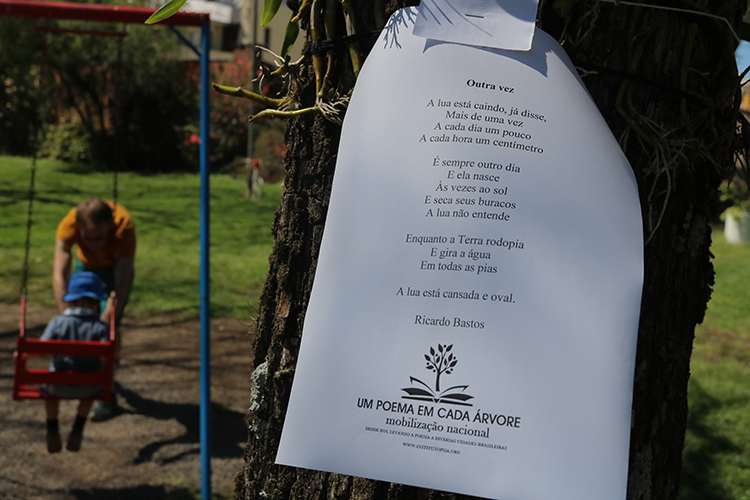 Outra vez
A lua está caindo, já disse,
Mais de uma vez
A cada dia um pouco
A cada hora um centímetro
É sempre outro dia
E ela nasce
Às vezes ao sol
E seca seus buracos
A lua não entende
Enquanto a Terra rodopia
E gira a água
Em todas as pias
A lua está cansada e oval.
Ricardo Bastos
UM POEMA EM CADA ÁRVORE
mobilização nacional
DESDE 2010, LEVANDO A POESIA A DIVERSAS CIDADES BRASILEIRAS
WWW.INSTITUTOPSIA.ORG